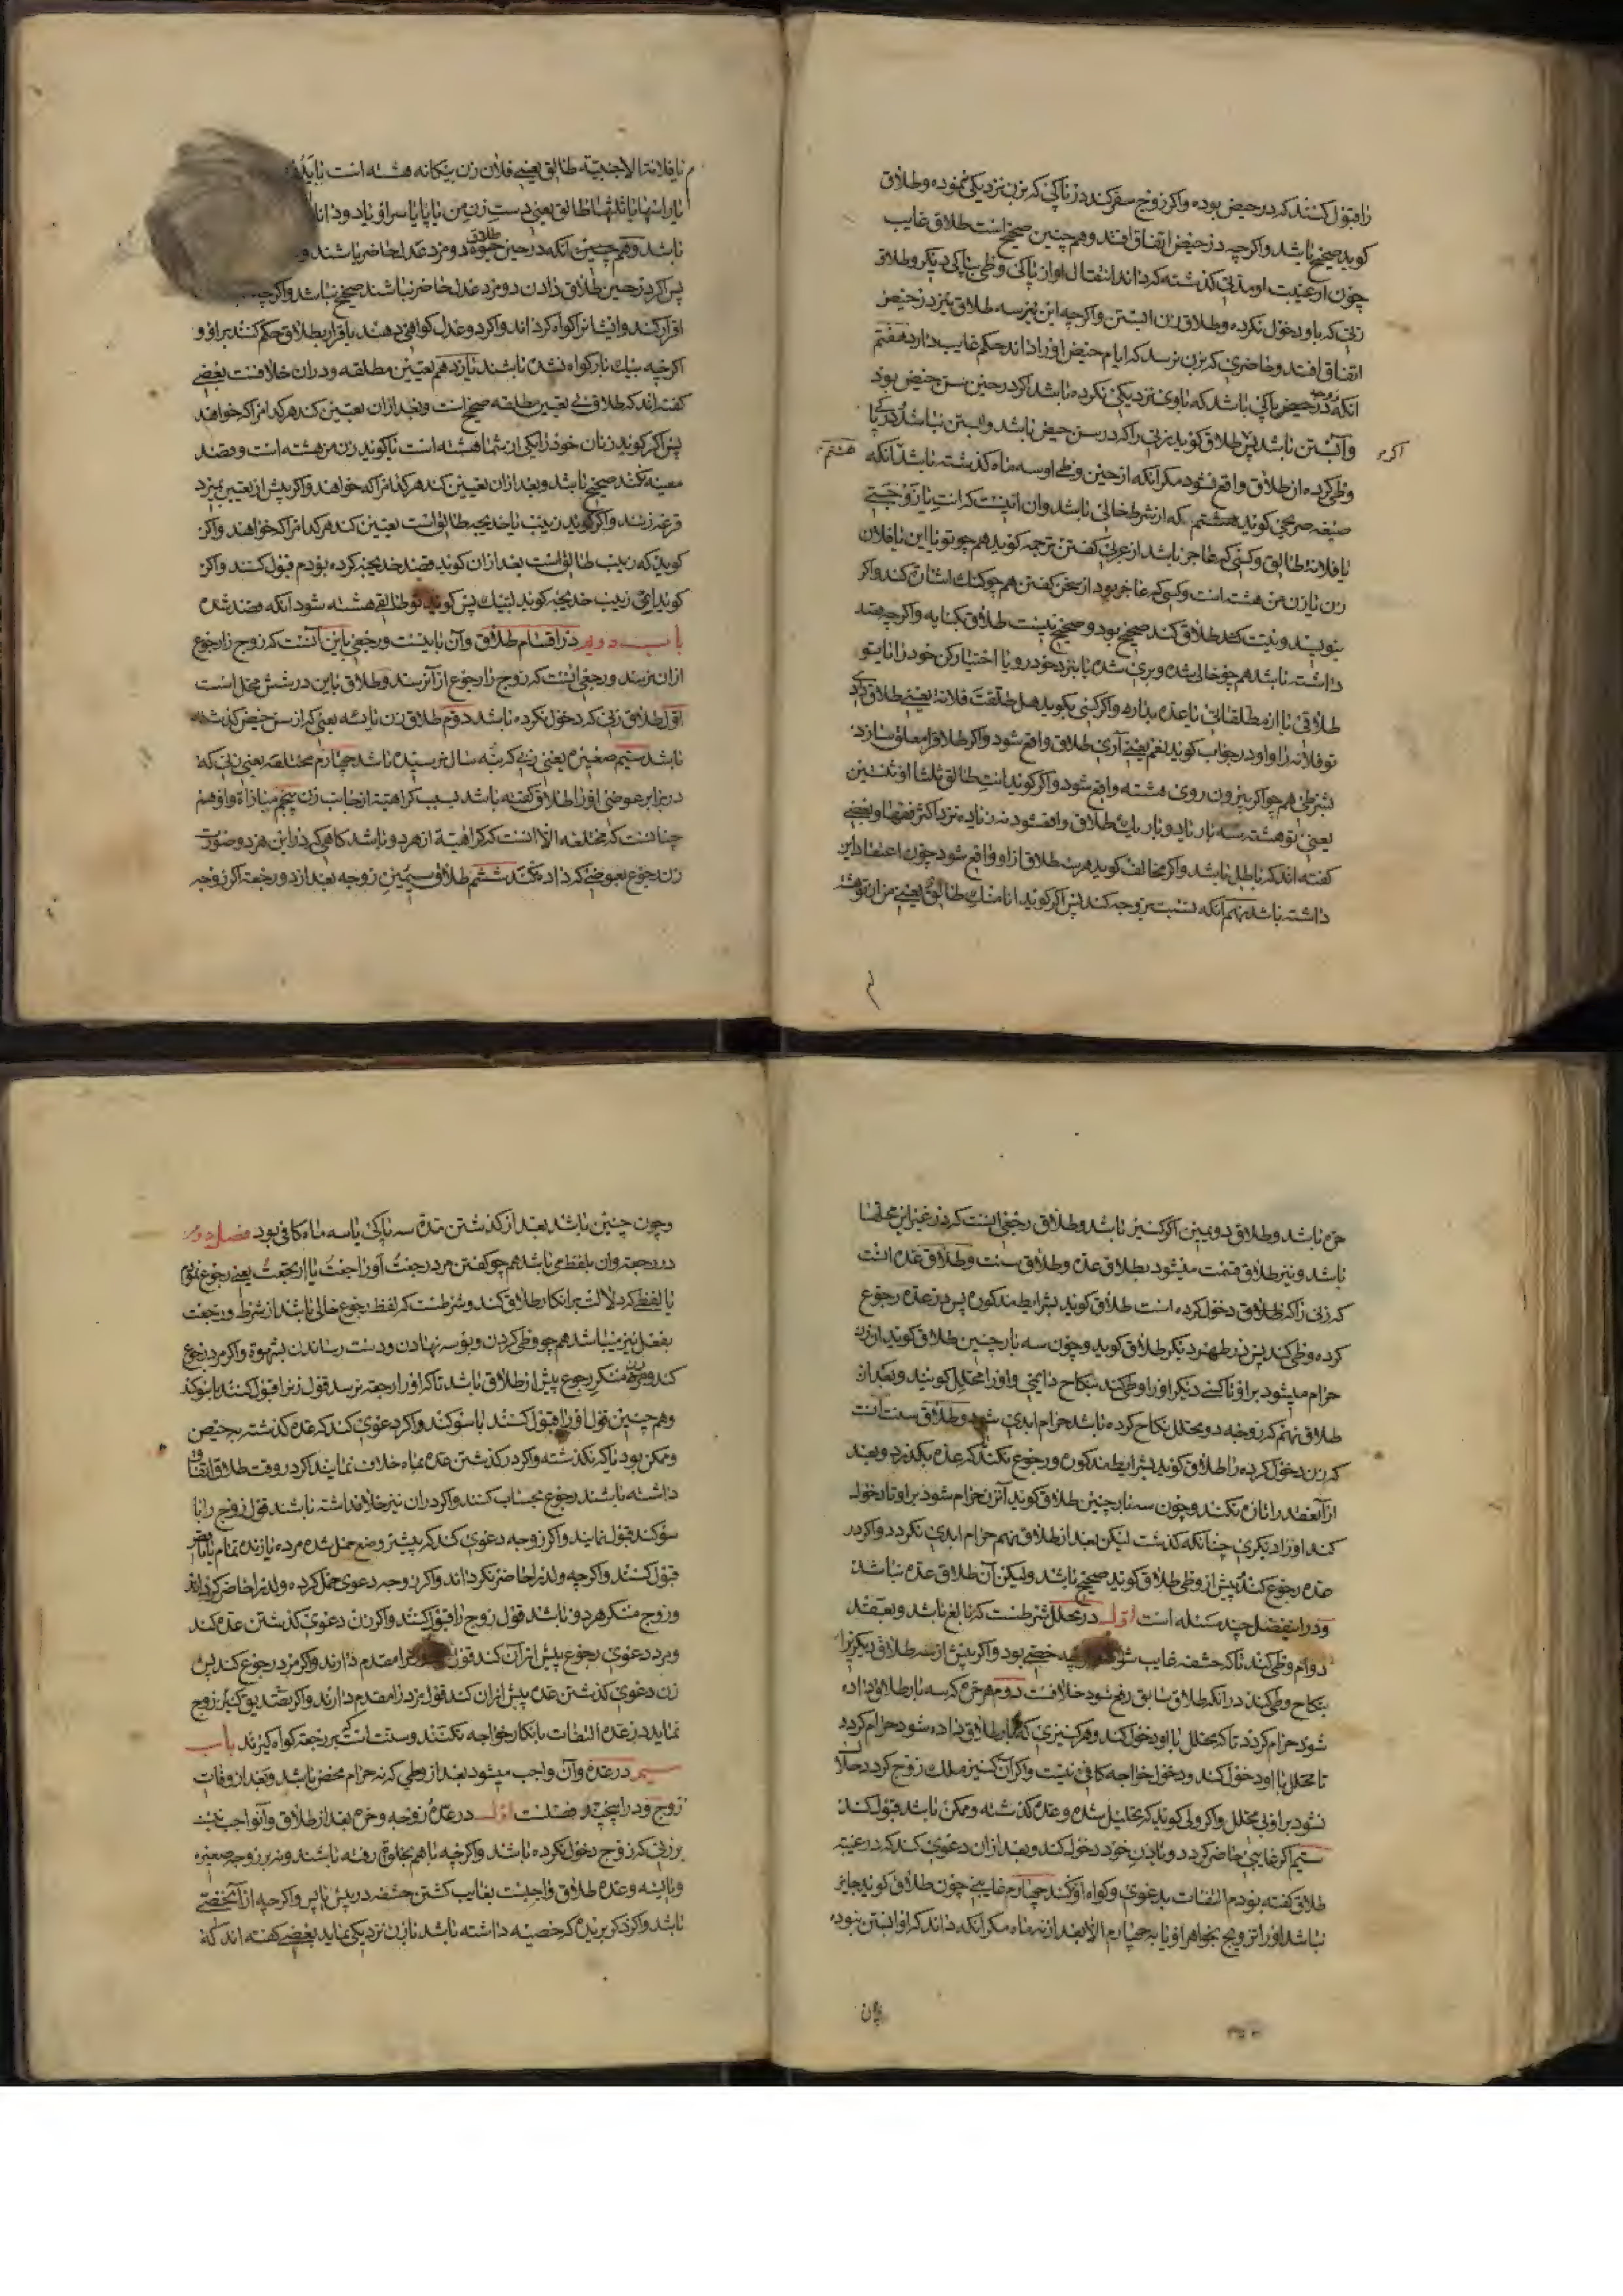 را قبول کنند که در حیض بوده و اکر زوج سفر کند در پاکی که بزن نزدیکی نموده و طلاق
کوید صحیح باشد و اکرچه در حیض اتفاق افتد و هم چنین صحیح است طلاق غایب
چون از غیبت او مدتی کذشته که داند انتقال او از پاکی وطی بپاکی دیکر و طلاق
زنی که باو دخول نکرده و طلاق زن ابستن و اکرچه این هر سه طلاق نیز در حیض
اتفاق افتد و حاضری که بزن نرسد که ایام حیض او را داند حکم غایب دارد هفتم
انکه زوجه در پاکی باشد که باوی نزدیکی نکرده باشد اکر در حین سن حیض بود
و ابستن نباشد پس طلاق کوید زنی را که در سن حیض باشد و ابستن نباشد در پا
اکر
کی
وطی کرده ان طلاق واقع نشود مکر آنکه از حین وطی او سه ماه کذشته باشد آنکه
هشتم
صیغه صریح کوید هشتم که از شرط خالی باشد و ان اینست که انت یا زوجتی
یا فلانة طالق و کسی که عاجز باشد از عربی کفتن ترجمه کوید هم چو تو یا این یا فلان
زن یا زن من هشته است و کسی که عاجز بود از سخن کفتن هم چو کنک اشاره کند و اکر
بنویسد و نیت کند طلاق کند صحیح بود و صحیح نیست طلاق بکنایه و اکرچه قصد
داشته باشد هم چو خالی شده و بری شده یا بنزد خود رو یا اختیار کن خود را یا بتو
طلاقی یا از مطلقاتی یا عده بدار و اکر کسی بکوید هل طلقت فلانة یعنی طلاق دادی
تو فلانه را و او در جواب کوید نعم یعنی آری طلاق واقع شود و اکر طلاق را معلق سازد
بشرطی هم چو اکر بیرون روی هشته واقع نشود و اکر کوید انت طالق ثلثا او ثنتین
یعنی تو هشته سه بار یا دو بار یک طلاق واقع شود نه زیاده نزد اکثر فقها و بعضی
کفته اند که باطل باشد و اکر مخالف کوید هر سه طلاق از او واقع شود چون اعتقاد این
داشته باشد نهم آنکه نسبت بزوجه کند پس اکر کوید انا منک طالق یعنی من از تو هشته
م
یا فلانة الاجنبیة طالق یعنی فلان زن بیکانه هشته است یا یدها
یا راسها یا ثلثها طالق یعنی دست زن من یا پا یا سر او یا دو دانک
باشد و هم چنین انکه در حین طلاق دو مرد عدل حاضر باشند و
پس اکر در حین طلاق دادن دو مرد عدل حاضر نباشند صحیح نباشد و اکرچه
اقرار کند و ایشانرا کواه کرداند و اکر دو عدل کواهی دهند باقرار بطلاق حکم کنند بر او و
اکرچه بیک بار کواه نشده باشند یازدهم تعیین مطلقه و در ان خلافست بعضی
کفته اند که طلاق بی تعیین مطلقه صحیح است و بعد ازان تعیین کند هر کدام را که خواهد
پس اکر کوید زنان خود را یکی از شما هشته است یا کوید زن من هشته است و قصد
معینه نکند صحیح باشد و بعد ازان تعیین کند هر کدام را که خواهند و اکر پیش از تعیین بمیرد
قرعه زنند و اکر کوید زینب یا خدیجه طالق است تعیین کند هر کدام را که خواهند و اکر
کوید که زینب طالق است بعد ازان کوید قصد خدیجه کرده بودم قبول کنند و اکر
کوید ای زینب خدیجه کوید لبیک پس کوید تو طالقی هشته شود آنکه قصد شده
باب دویم در اقسام طلاق و آن باینست و رجعی باین آنست که زوج را رجوع
ازان نرسد و رجعی انست که زوج را رجوع از آن رسد و طلاق باین در شش محل است
اول طلاق زنی که دخول نکرده باشد دوم طلاق زن یائسه یعنی که از سن حیض کذشته
باشد سیم صغیره یعنی زنی که بنه سال نرسیده باشد چهارم مختلعه یعنی زنی که
در برابر عوضی او را طلاق کفته باشد بسبب کراهیة از جانب زن پنجم مباراة و او هم
چنانست که مختلعه الا انست که کراهیة از هر دو باشد کاهی که در این هر دو صورت
زن رجوع بعوضی که داده نکند ششم طلاق سیمین زوجه بعد از دو رجعة اکر زوجه
حره باشد و طلاق دویمین اکر کنیز باشد و طلاق رجعی انست که در غیر این محلها
باشد و نیز طلاق قسمت میشود بطلاق عده و طلاق سنت و طلاق عده انست
که زنی را که طلاق دخول کرده است طلاق کوید بشرایط مذکوره پس در عده رجوع
کرده وطی کند پس در طهر دیکر طلاق کوید و چون سه بار چنین طلاق کوید ان زن
حرام میشود بر او تا کسی دیکر او را وطی کند بنکاح دایمی و او را محلل کویند و بعد ان
طلاق نهم که زوجه دو محلل نکاح کرده باشد حرام ابدی شود و طلاق سنت انست
که زن دخول کرده را طلاق کوید بشرایط مذکوره و رجوع نکند که عده بکذرد و بعد
از آن عقد را تازه نکند و چون سه بار چنین طلاق کوید آن زن حرام شود بر او تا دخول
کند او را دیکری چنانکه کذشت لیکن بعد از طلاق نهم حرام ابدی نکردد و اکر در
عده رجوع کند پیش از وطی طلاق کوید صحیح باشد ولیکن آن طلاق عده نباشد
و در این فصل چند مسئله است اول در محلل شرطست که بالغ باشد و بعقد
دوام وطی کند تا که حشفه غایب شود خصی بود و اکر پیش از سه طلاق دیکری را
بنکاح وطی کند در انکه طلاق سابق رفع شود خلافست دوم هر حره که سه بار طلاق داده
شود حرام کردد تا که محلل با او دخول کند و هر کنیزی که دو بار طلاق داده شود حرام کردد
تا محلل با او دخول کند و دخول خواجه کافی نیست و اکر آن کنیز ملک زوج کردد حلال
نشود بر او بی محلل و اکر ولی کوید که تحلیل شده و عده کذشته و ممکن باشد قبول کنند
سیم اکر غایبی حاضر کردد و با زن خود دخول کند و بعد ازان دعوی کند که در غیبة
طلاق کفته بودم التفات بدعوی و کواه او نکند چهارم غایبی چون طلاق کوید جایز
نباشد او را تزویج بخواهر او یا به چهارم الا بعد از نه ماه مکر آنکه داند که او ابستن نبوده
و چون چنین باشد بعد از کذشتن مدة سه پاکی یا سه ماه کافی بود فصل دوم
در رجعة و ان بلفظ می باشد هم چو کفتن مرد رجعتُ او راجعتُ یا ارتجعتُ یعنی رجوع نمودم
یا لفظی که دلالت بر انکار طلاق کند و شرطست که لفظ رجوع خالی باشد از شرط و رجعت
بفعل نیز میباشد هم چو وطی کردن و بوسه نهادن و دست رساندن بشهوة و اکر مرد رجوع
کند و زن منکر رجوع پیش از طلاق باشد تا که او را رجعة نرسد قول زن را قبول کنند با سوکند
و هم چنین قول او را قبول کنند با سوکند و اکر دعوی کند که عده کذشته بحیض
و ممکن بود یا که نکذشته و اکر در کذشتن عده بماه خلاف نمایند اکر در وقت طلاق اتفاق
داشته باشند رجوع بحساب کنند و اکر دران نیز خلاف داشته باشند قول زوج را با
سوکند قبول نمایند و اکر زوجه دعوی کند که پیشتر وضع حمل شده مرده یا زنده تمام یا ناقص
قبول کنند و اکرچه ولد را حاضر نکرداند و اکر زوجه دعوی حمل کرده و ولد را حاضر کرداند
و زوج منکر هر دو باشد قول زوج را قبول کنند و اکر زن دعوی کذشتن عده کند
و مرد دعوی رجوع پیش از آن کند قول را مقدم دارند و اکر مرد رجوع کند پس
زن دعوی کذشتن عده پیش از ان کند قول مرد را مقدم دارند و اکر تصدیق کنیز زوج
نماید در عده التفات بانکار خواجه نکنند و سنت است که بر رجعة کواه کیرند باب
سیم در عده و آن واجب میشود بعد از وطی که نه حرام محض باشد و بعد از وفات
زوج و در این پنج فصلست اول در عده زوجه و حره بعد از طلاق و آن واجب نیست
بر زنی که زوج دخول نکرده باشد و اکرچه با هم بخلوة رفته باشند و نه بر زوجه صغیره
و یائسه و عده طلاق واجبست بغایب کشتن حشفه در پیش یا پس و اکرچه از آن خصی
باشد و اکر ذکر بریده که خصیه داشته باشد با زن نزدیکی نماید بعضی کفته اند که